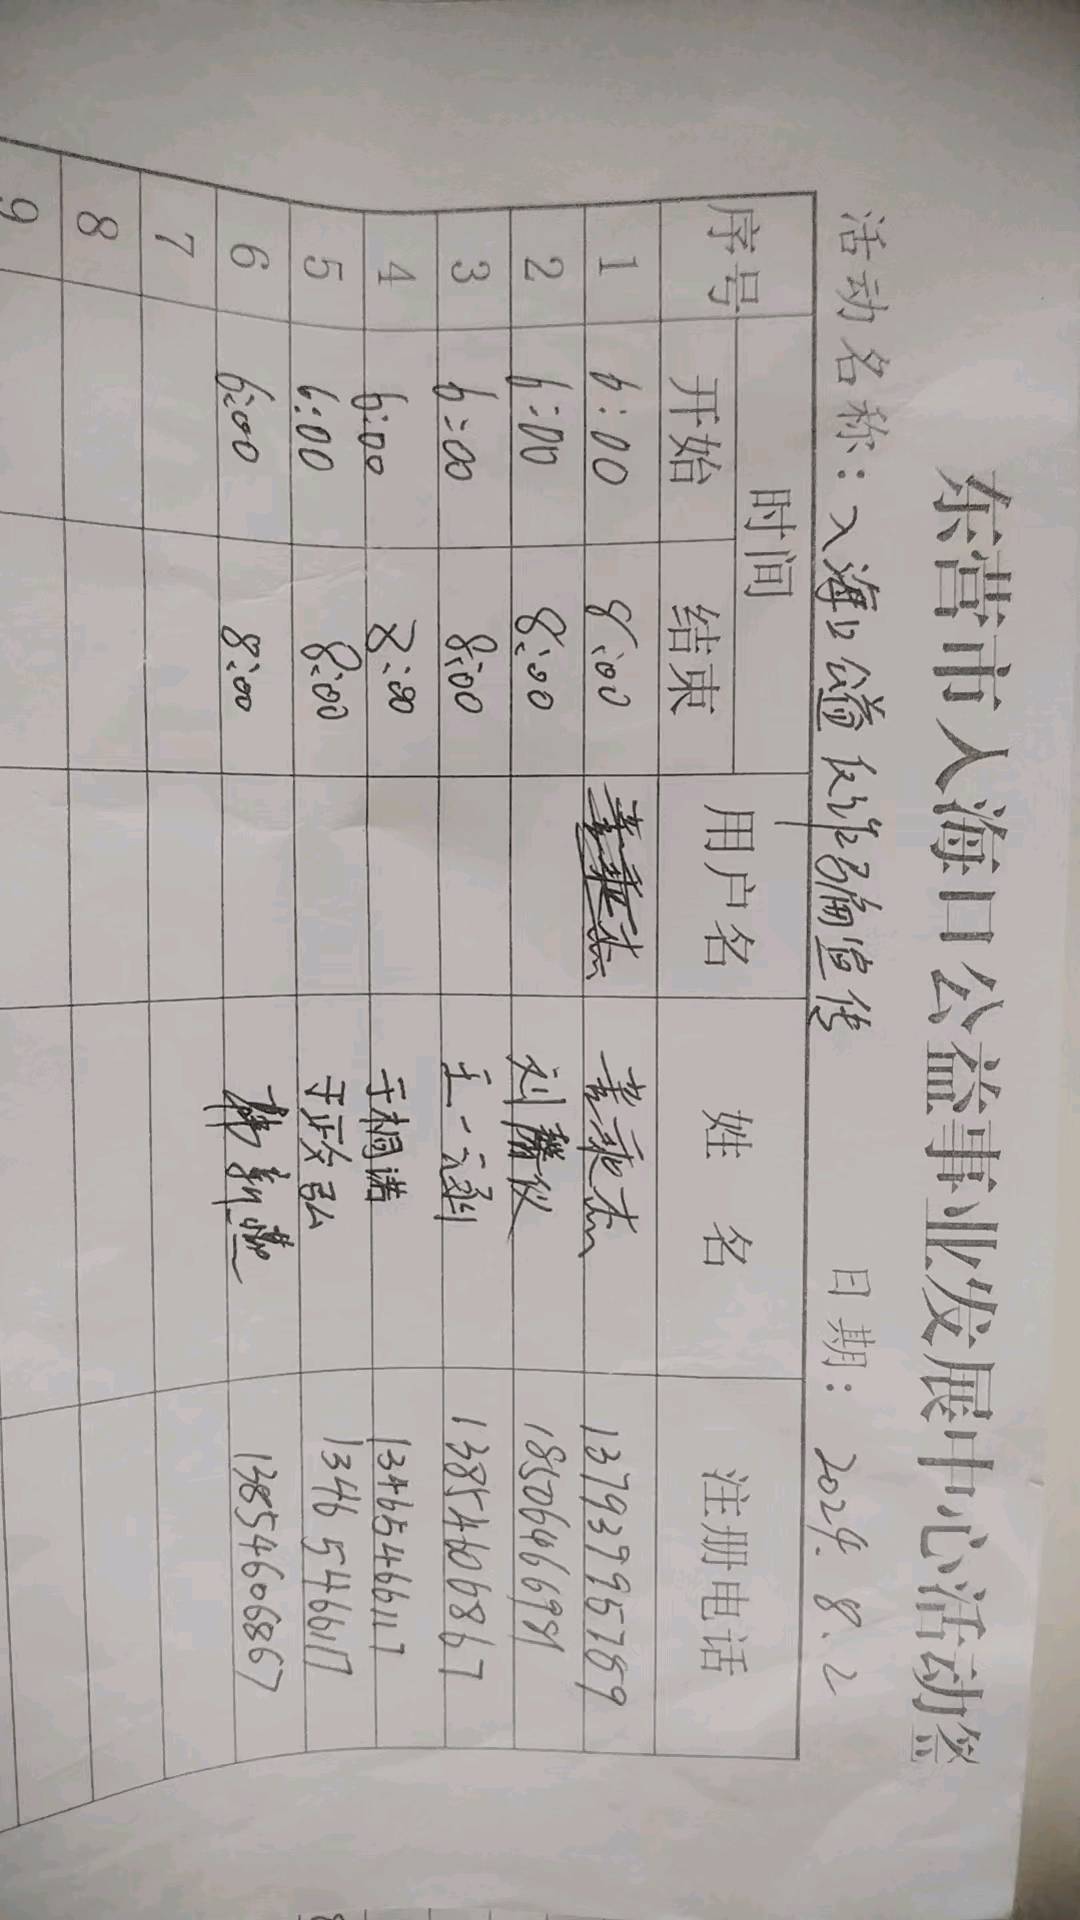 东营市入海口公益事业发展中心活动签
活动名称：入海口公益反诈骗宣传 日期：2024.8.2
序号 时间 用户名 姓名 注册电话
开始 结束
1 6:00 8:00 13793795769
2 6:00 8:00 刘馨仪 18506466981
3 6:00 8:00 王一涵 13854606867
4 6:00 8:00 于桐诺 13465466117
5 6:00 8:00 于政弘 13465466117
6 6:00 8:00 13854606867
7
8
9